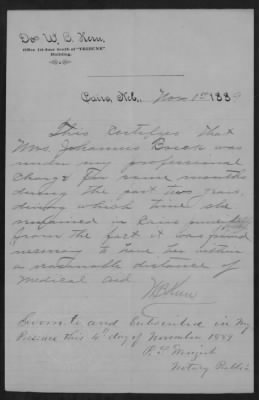 Dr. W. B. Kern,
Office 1st door South of "TRIBUNE"
Building.
Cairo, Neb., Nov 1st 1889
This certifies that
Mrs. Johannes Boeck was
under my professional
charge for some months
during the past two years,
during which time she
remained in Cairo
from the fact it was found
necessary to have her within
a reasonable distance of
medical aid
W B Kern
Sworn to and Subscribed in my
Presence this 4th day of November 1889
Notary Public